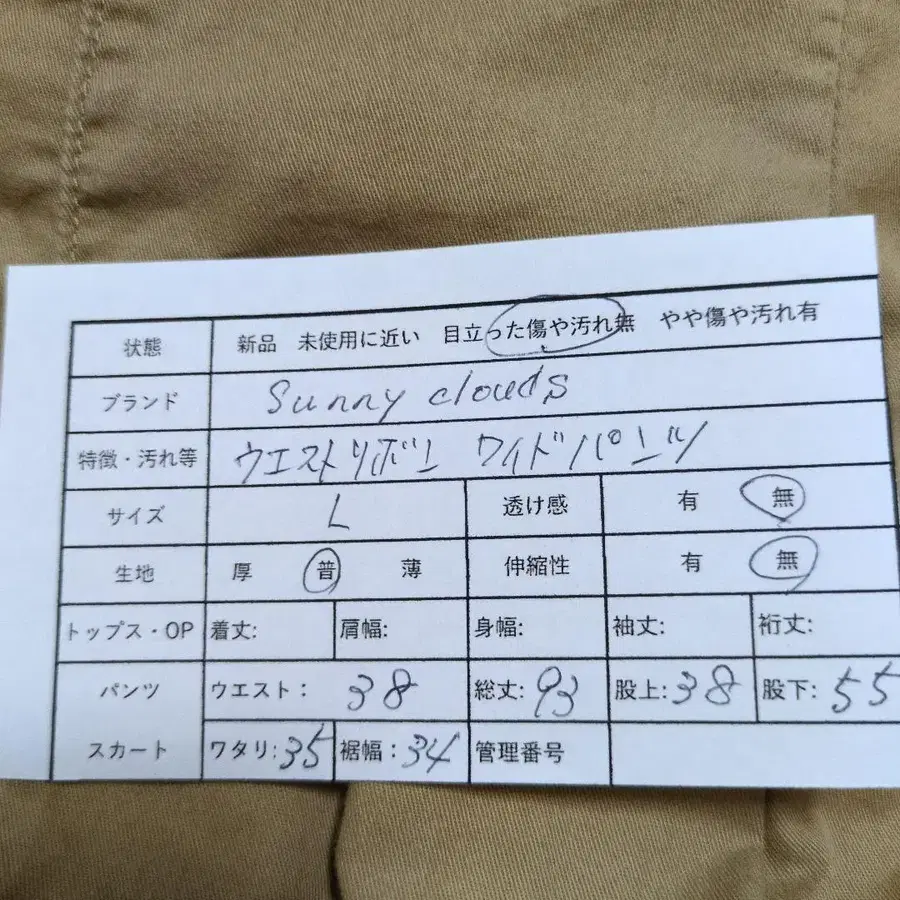 状態 新品 未使用に近い 目立った傷や汚れ無 やや傷や汚れ有
ブランド Sunny clouds
特徴・汚れ等 ウエストリボン ワイドパンツ
サイズ L 透け感 有 無
生地 厚 普 薄 伸縮性 有 無
トップス・OP 着丈: 肩幅: 身幅: 袖丈: 裄丈:
パンツ ウエスト: 38 総丈: 93 股上: 38 股下: 55
スカート ワタリ: 35 裾幅: 34 管理番号